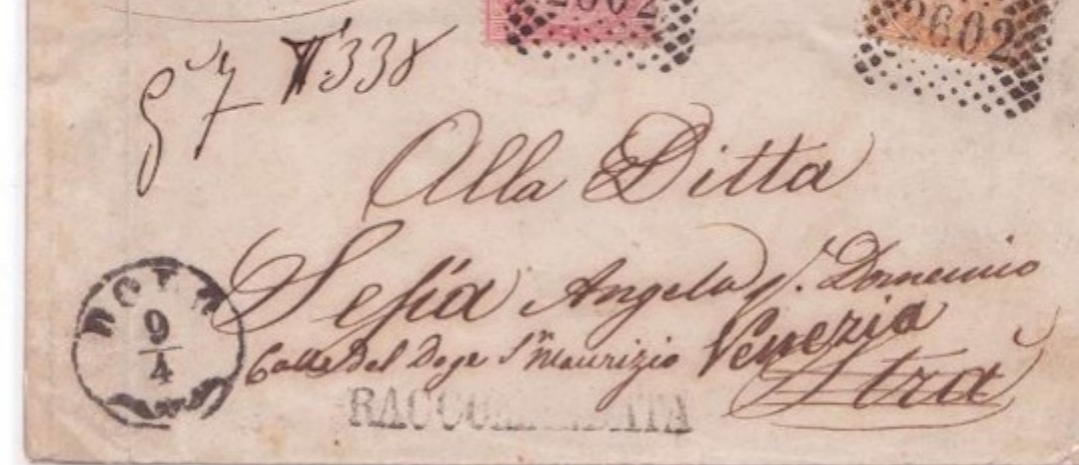 2602
2602
N° 338
Alla Ditta
Angelo q. Domenico
Calle del Doge Sn Maurizio Venezia
Strà
DOLO
9
4
RACCOMANDATA